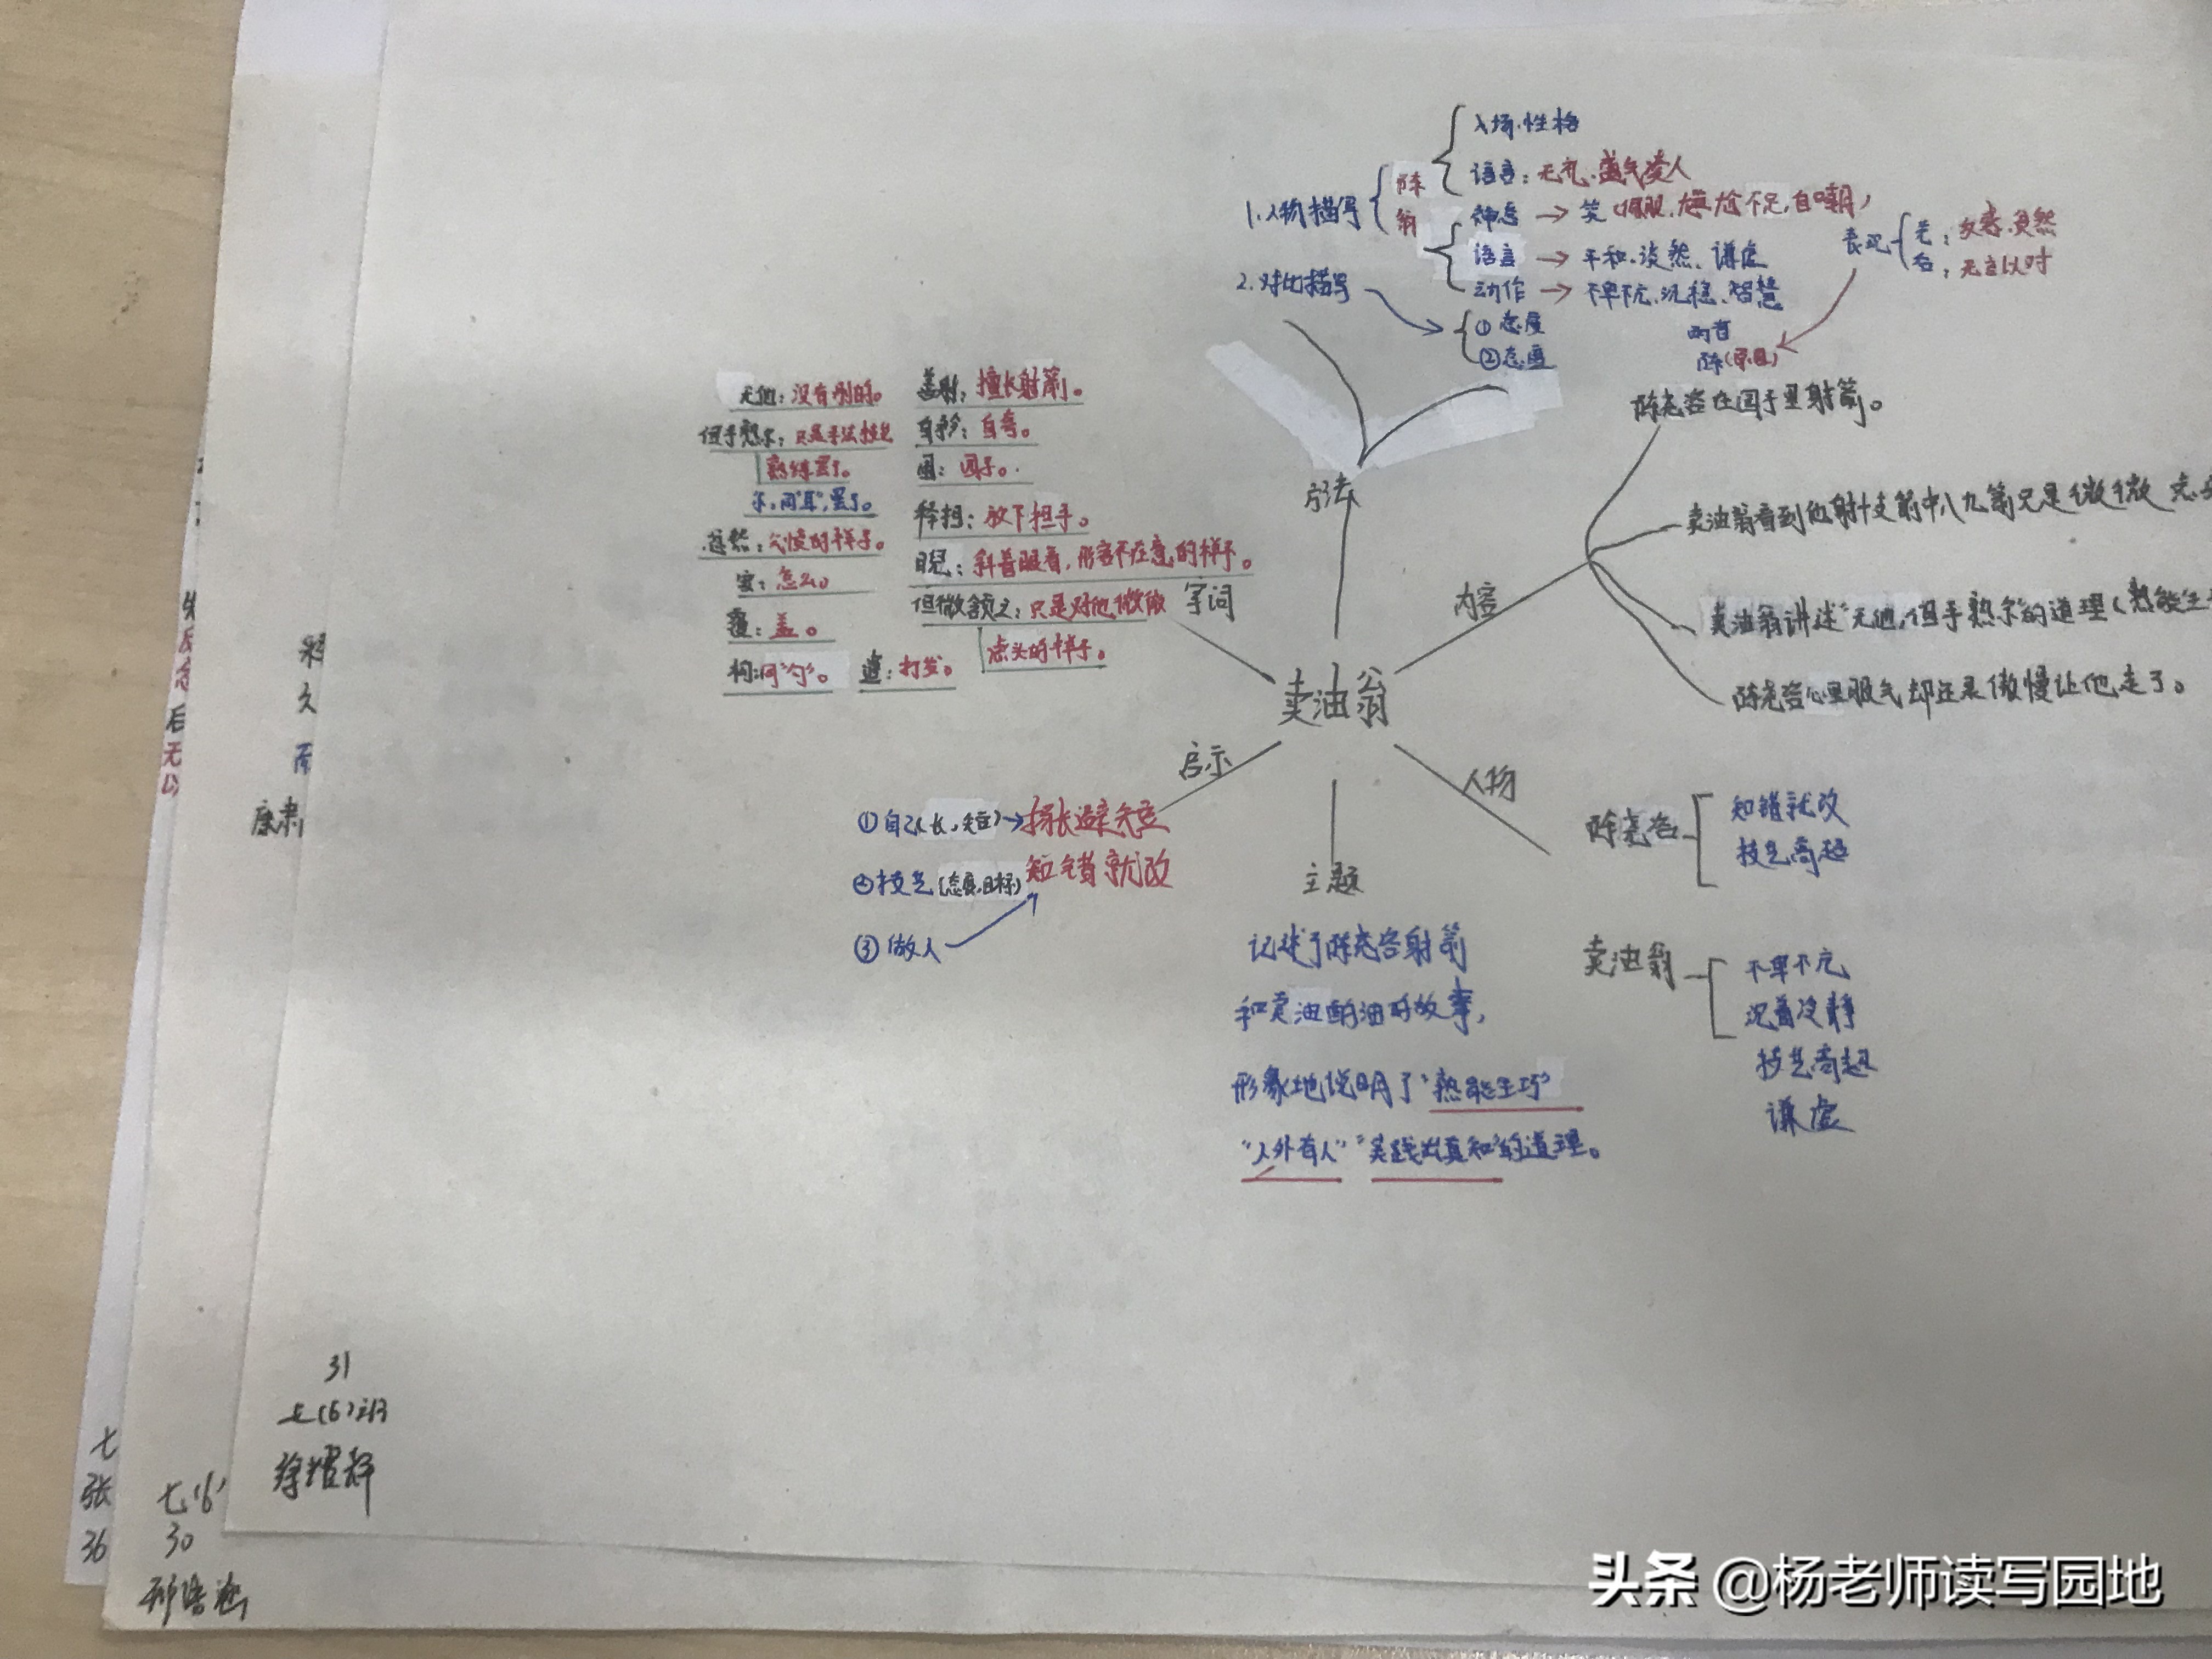 入场.性格
1.人物描写
陈
语言：无礼.盛气凌人
翁
神态→笑(佩服.尴尬不足,自嘲)
语言→平和.淡然、谦虚
动作→不卑不亢.沉稳、智慧
2.对比描写
①态度
②态度
表现
先：
后：无言以对
陈
方法
无他：没有别的。
但手熟尔：只是手法技艺
熟练罢了。
尔,同"耳",罢了。
忿然：气愤的样子。
安：怎么。
覆：盖。
杓:同"勺"。
遣：打发。
善射：擅长射箭。
自矜：自夸。
圃：园子。
释担：放下担子。
睨：斜着眼看,形容不在意的样子。
但微颔之：只是对他微微
点头的样子。
字词
内容
陈尧咨在园子里射箭。
卖油翁看到他射十支箭中八九箭只是微微点
卖油翁讲述"无他,但手熟尔"的道理(熟能生
陈尧咨心里服气却还是傲慢让他走了。
卖油翁
启示
①自己(长,短)→扬长避短
②技艺(态度,目标)
知错就改
③做人
主题
记述了陈尧咨射箭
和卖油酌油的故事,
形象地说明了"熟能生巧"
"人外有人""实践出真知"的道理。
人物
陈尧咨
知错就改
技艺高超
卖油翁
不卑不亢
沉着冷静
技艺高超
谦虚
康肃
31
七(6)班
徐耀辉
七(6)
30
七
张
36
头条 @杨老师读写园地